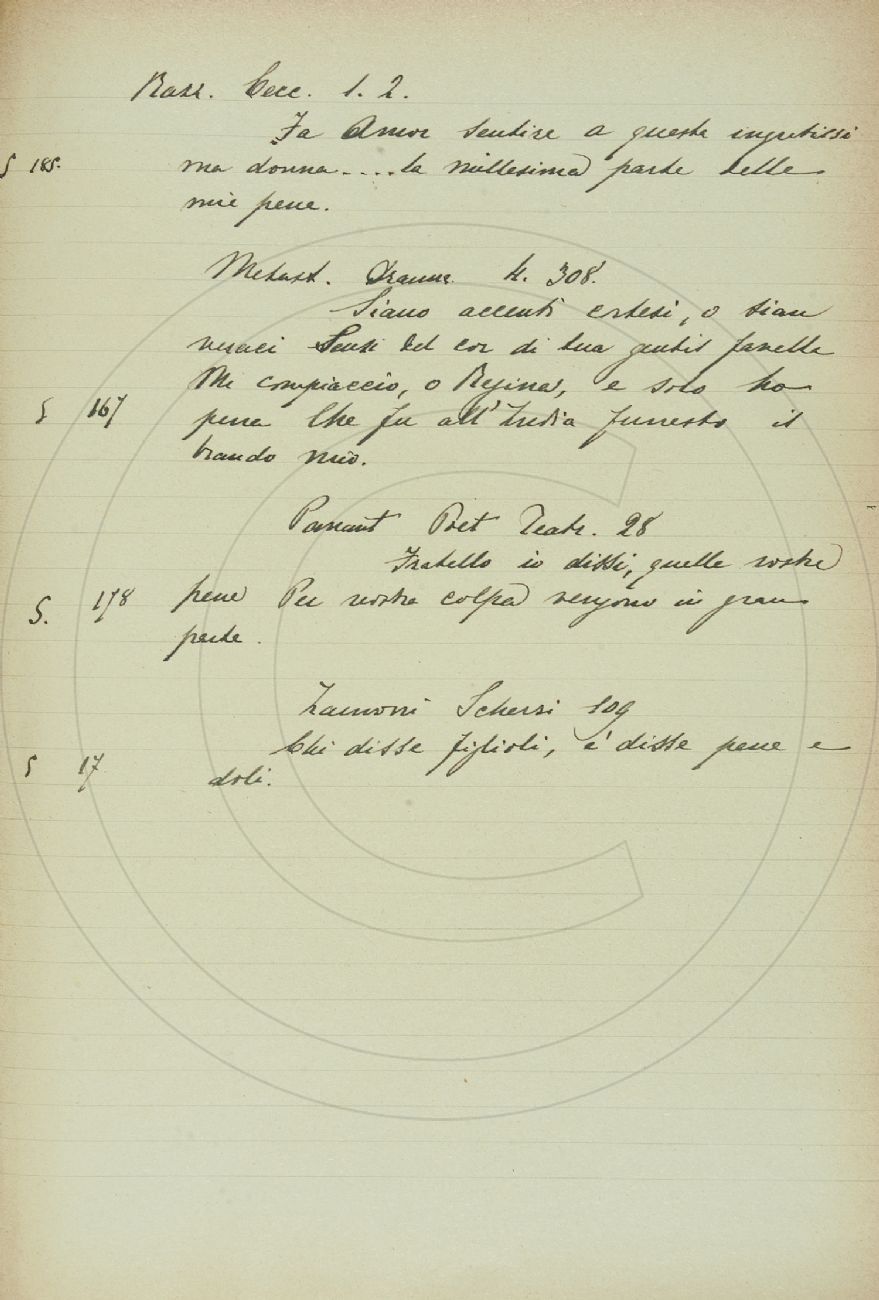 Razz. Cecc. 1. 2.
Fa Amor sentire a questa ingratissi
§ 185. ma donna....la millesima parte delle
mie pene.
Metast. Dramm. 4. 308.
Siano accenti cortesi, o sian
veraci Sensi del cor di tua gentil favella
Mi compiaccio, o Regina, e solo ho
§ 167 pena Che fu all'India funesto il
brando mio.
Pananti Poet Teatr. 28
Fratello io dissi, quelle vostre
§. 178 pene Per vostra colpa vengono in gran
parte.
Zannoni Scherzi 109
Chi disse figlioli, e' disse pene e
§ 17 doli.